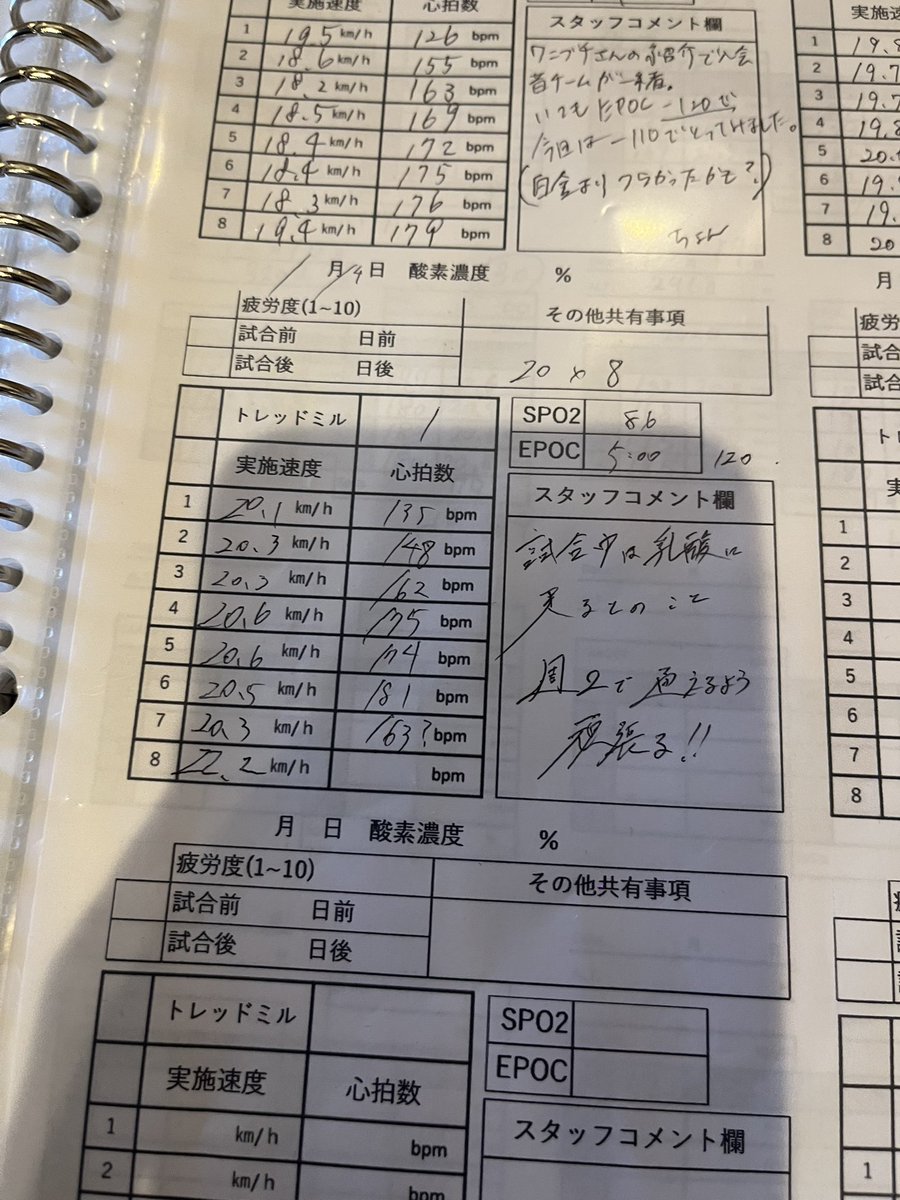 実施速度 心拍数
1 19.5 km/h 126 bpm
2 18.6 km/h 155 bpm
3 18.2 km/h 163 bpm
4 18.5 km/h 169 bpm
5 18.4 km/h 172 bpm
6 18.4 km/h 175 bpm
7 18.3 km/h 176 bpm
8 19.4 km/h 179 bpm
スタッフコメント欄
ワニブチさんの紹介で入会
昔チームが一緒。
いつもEPOC -120で
今回は -110でとってみました。
(白金よりつらかったかも?)
1月4日 酸素濃度 %
疲労度(1~10) その他共有事項
試合前 日前
試合後 日後
20 × 8
トレッドミル 1
実施速度 心拍数
1 20.1 km/h 135 bpm
2 20.3 km/h 148 bpm
3 20.3 km/h 162 bpm
4 20.6 km/h 175 bpm
5 20.6 km/h 174 bpm
6 20.5 km/h 181 bpm
7 20.3 km/h 163? bpm
8 22.2 km/h bpm
SPO2 86
EPOC 5:00 120
スタッフコメント欄
試合中は乳酸に
来るとのこと
週2で通えるよう
頑張る!!
月 日 酸素濃度 %
疲労度(1~10) その他共有事項
試合前 日前
試合後 日後
トレッドミル
実施速度 心拍数
1 km/h bpm
2 km/h bpm
SPO2
EPOC
スタッフコメント欄
実施速
1 19.8
2 19.7
3 19.7
4 19.8
5 20.
6 19.
7 19.
8 20
月
疲労
試合
試合
1
2
3
4
5
6
7
8
1